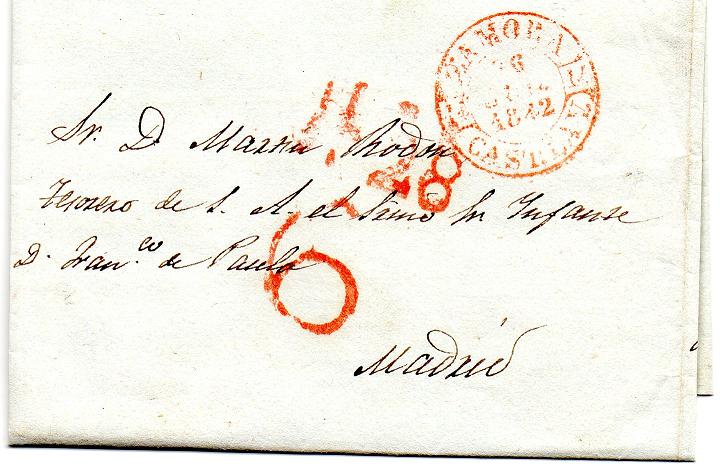 ZAMORA
6
1842
CAST. LA V.
Sr. D. Martin Rodon
8
Tesorero de S. A. el Srmo Sr. Infante
D. Fran.co de Paula
6
Madrid